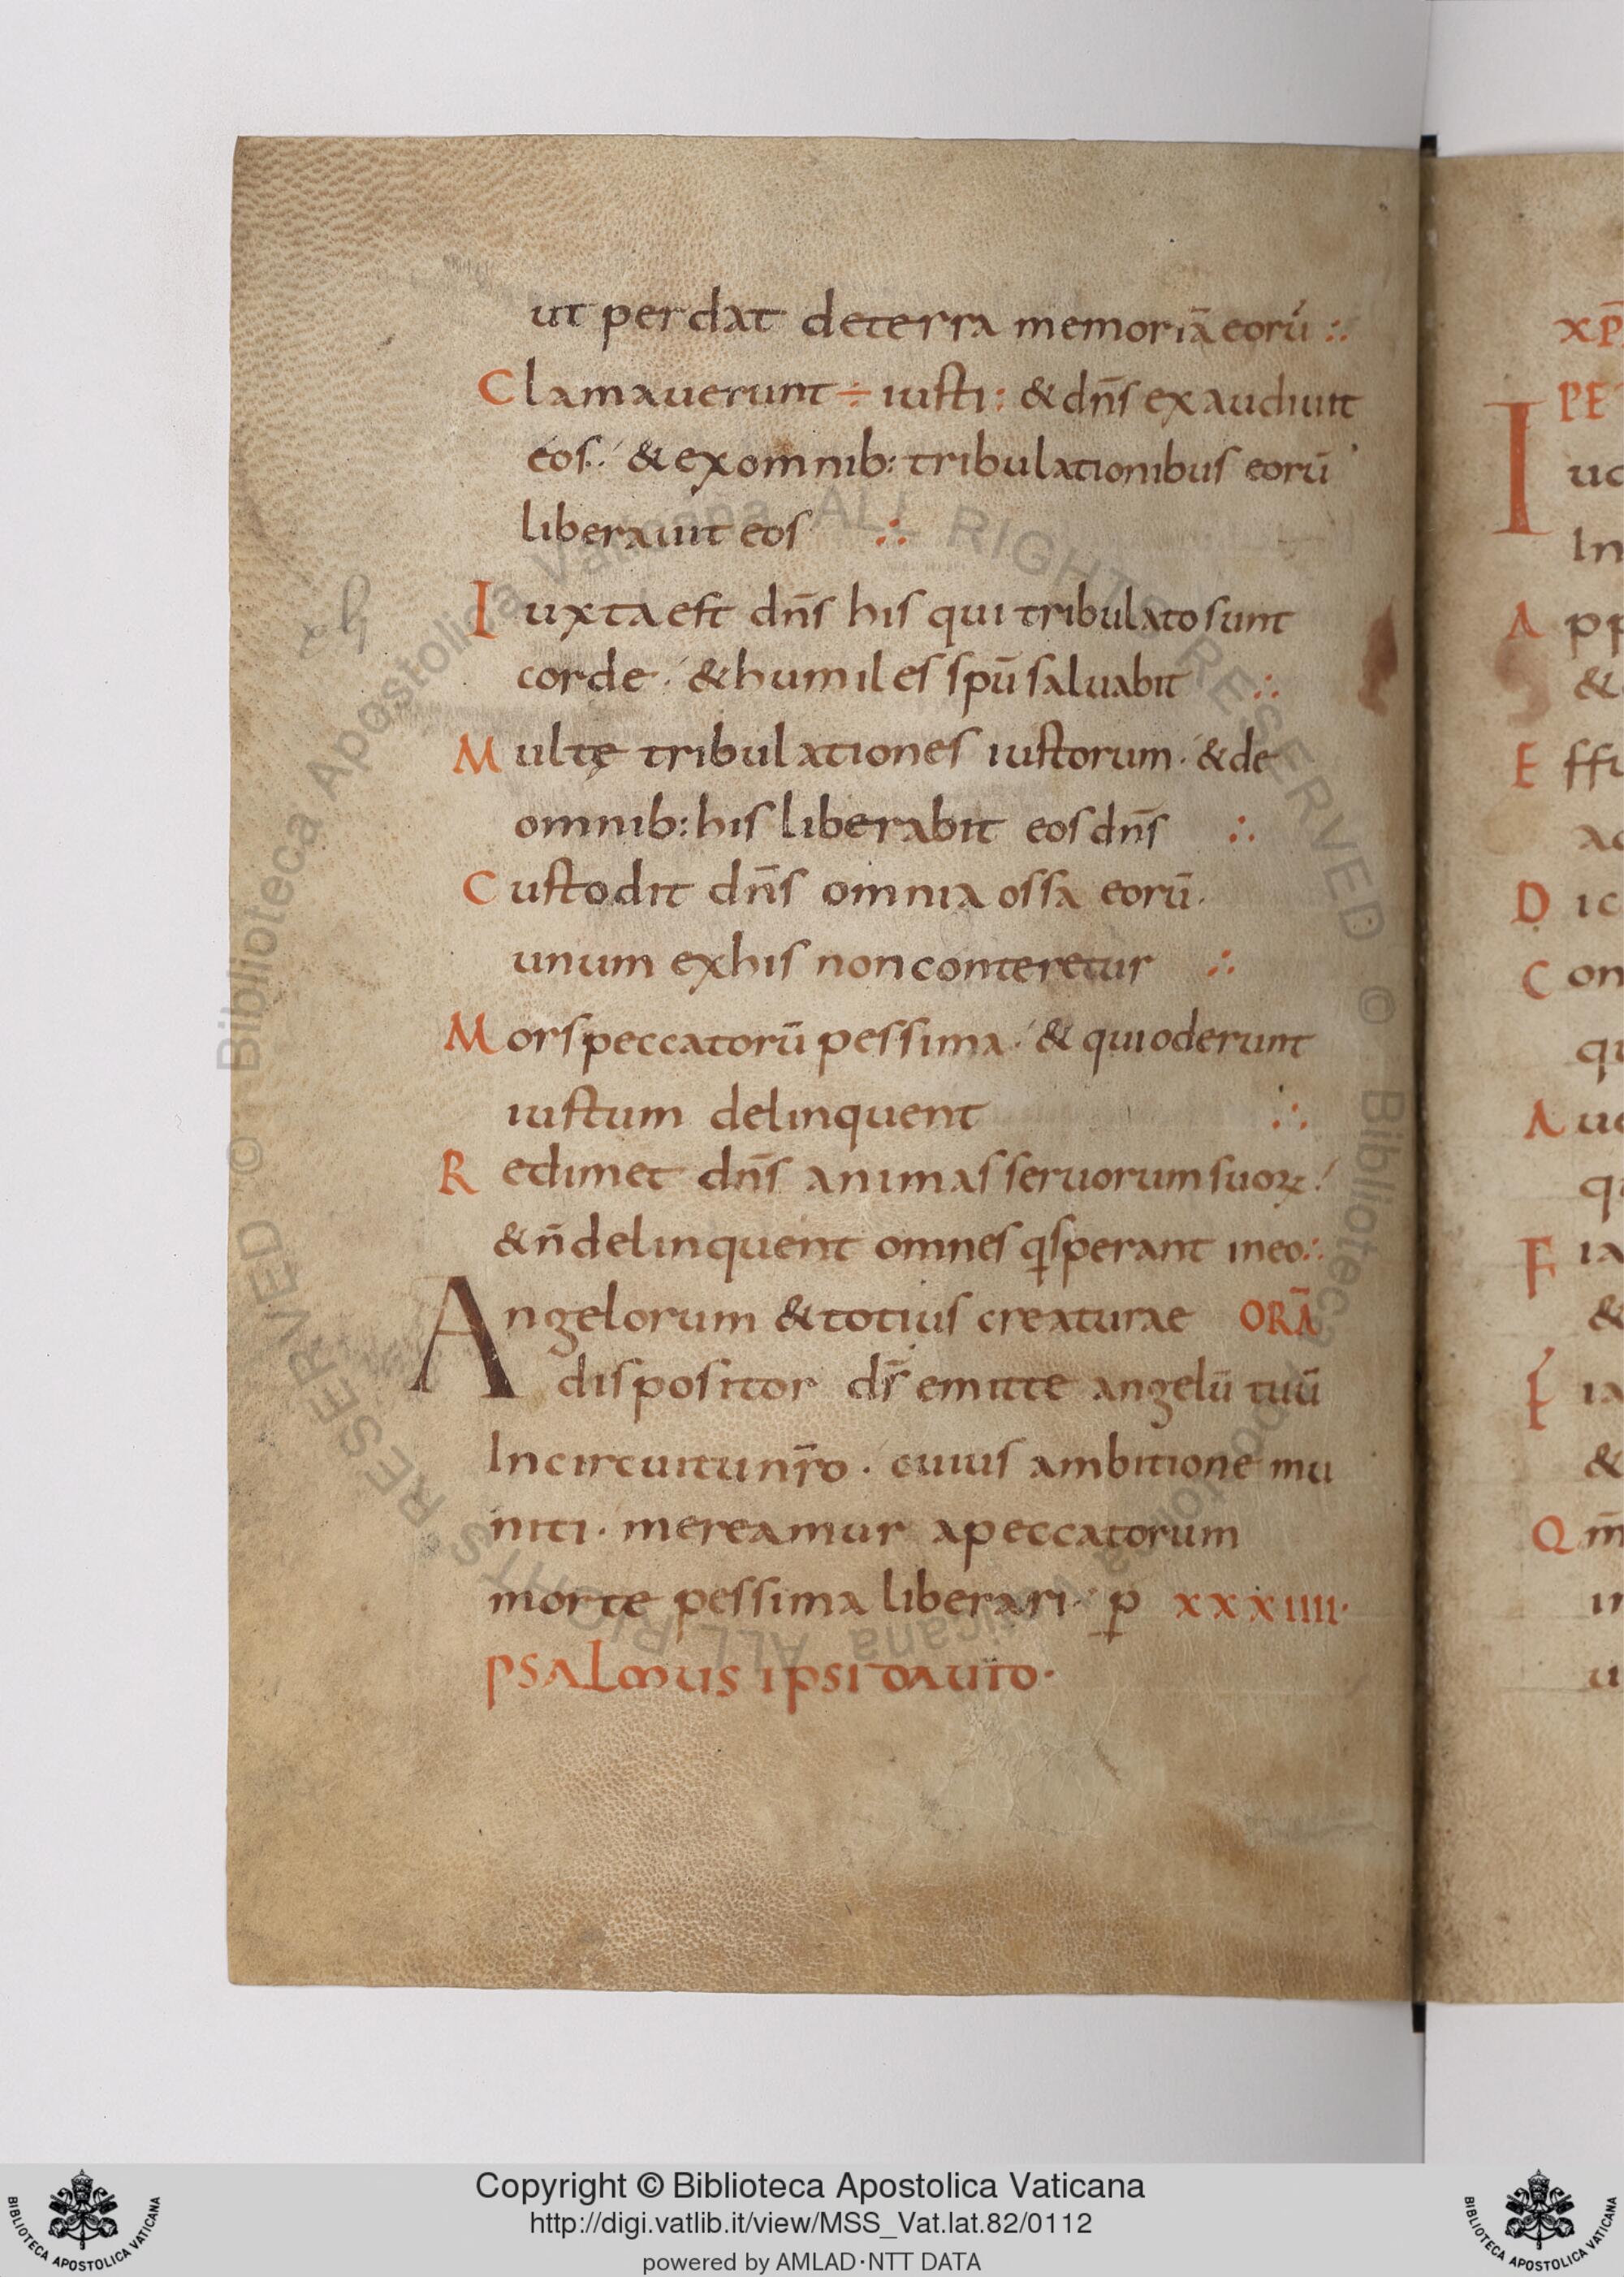 ut perdat deterra memoriā eorū ∴
Clamauerunt ÷ iusti: & dn̄s exaudiuit
eos. & exomnib: tribulationibus eorū
liberauit eos ∴
Iuxta est dn̄s his qui tribulato sunt
corde. & humiles spū saluabit ∴
Multę tribulationes iustorum. & de
omnib: his liberabit eos dn̄s ∴
Custodit dn̄s omnia ossa eorū.
unum exhis non conteretur ∴
Mors peccatorū pessima. & qui oderunt
iustum delinquent ∴
Redimet dn̄s animas seruorum suoꝝ.
& n̄ delinquent omnes qsperant ineo ∴
Angelorum & totius creaturae ORĀ
dispositor dr̄ emitte angelū tuū
Incircuitu nr̄o. cuius ambitione mu
niti. mereamur apeccatorum
morte pessima liberari. p xxxiiii.
psalmus ipsi dauid.
XP
PE
I uc
In
A pp
&
E ffu
ac
D ic
C on
qu
A ue
qu
F ia
&
F ia
&
Q m̄
in
u
© Biblioteca Apostolica Vaticana ALL RIGHTS RESERVED © Biblioteca Apostolica Vaticana ALL RIGHTS RESERVED
Copyright © Biblioteca Apostolica Vaticana
http://digi.vatlib.it/view/MSS_Vat.lat.82/0112
powered by AMLAD·NTT DATA
BIBLIOTECA APOSTOLICA VATICANA
BIBLIOTECA APOSTOLICA VATICANA